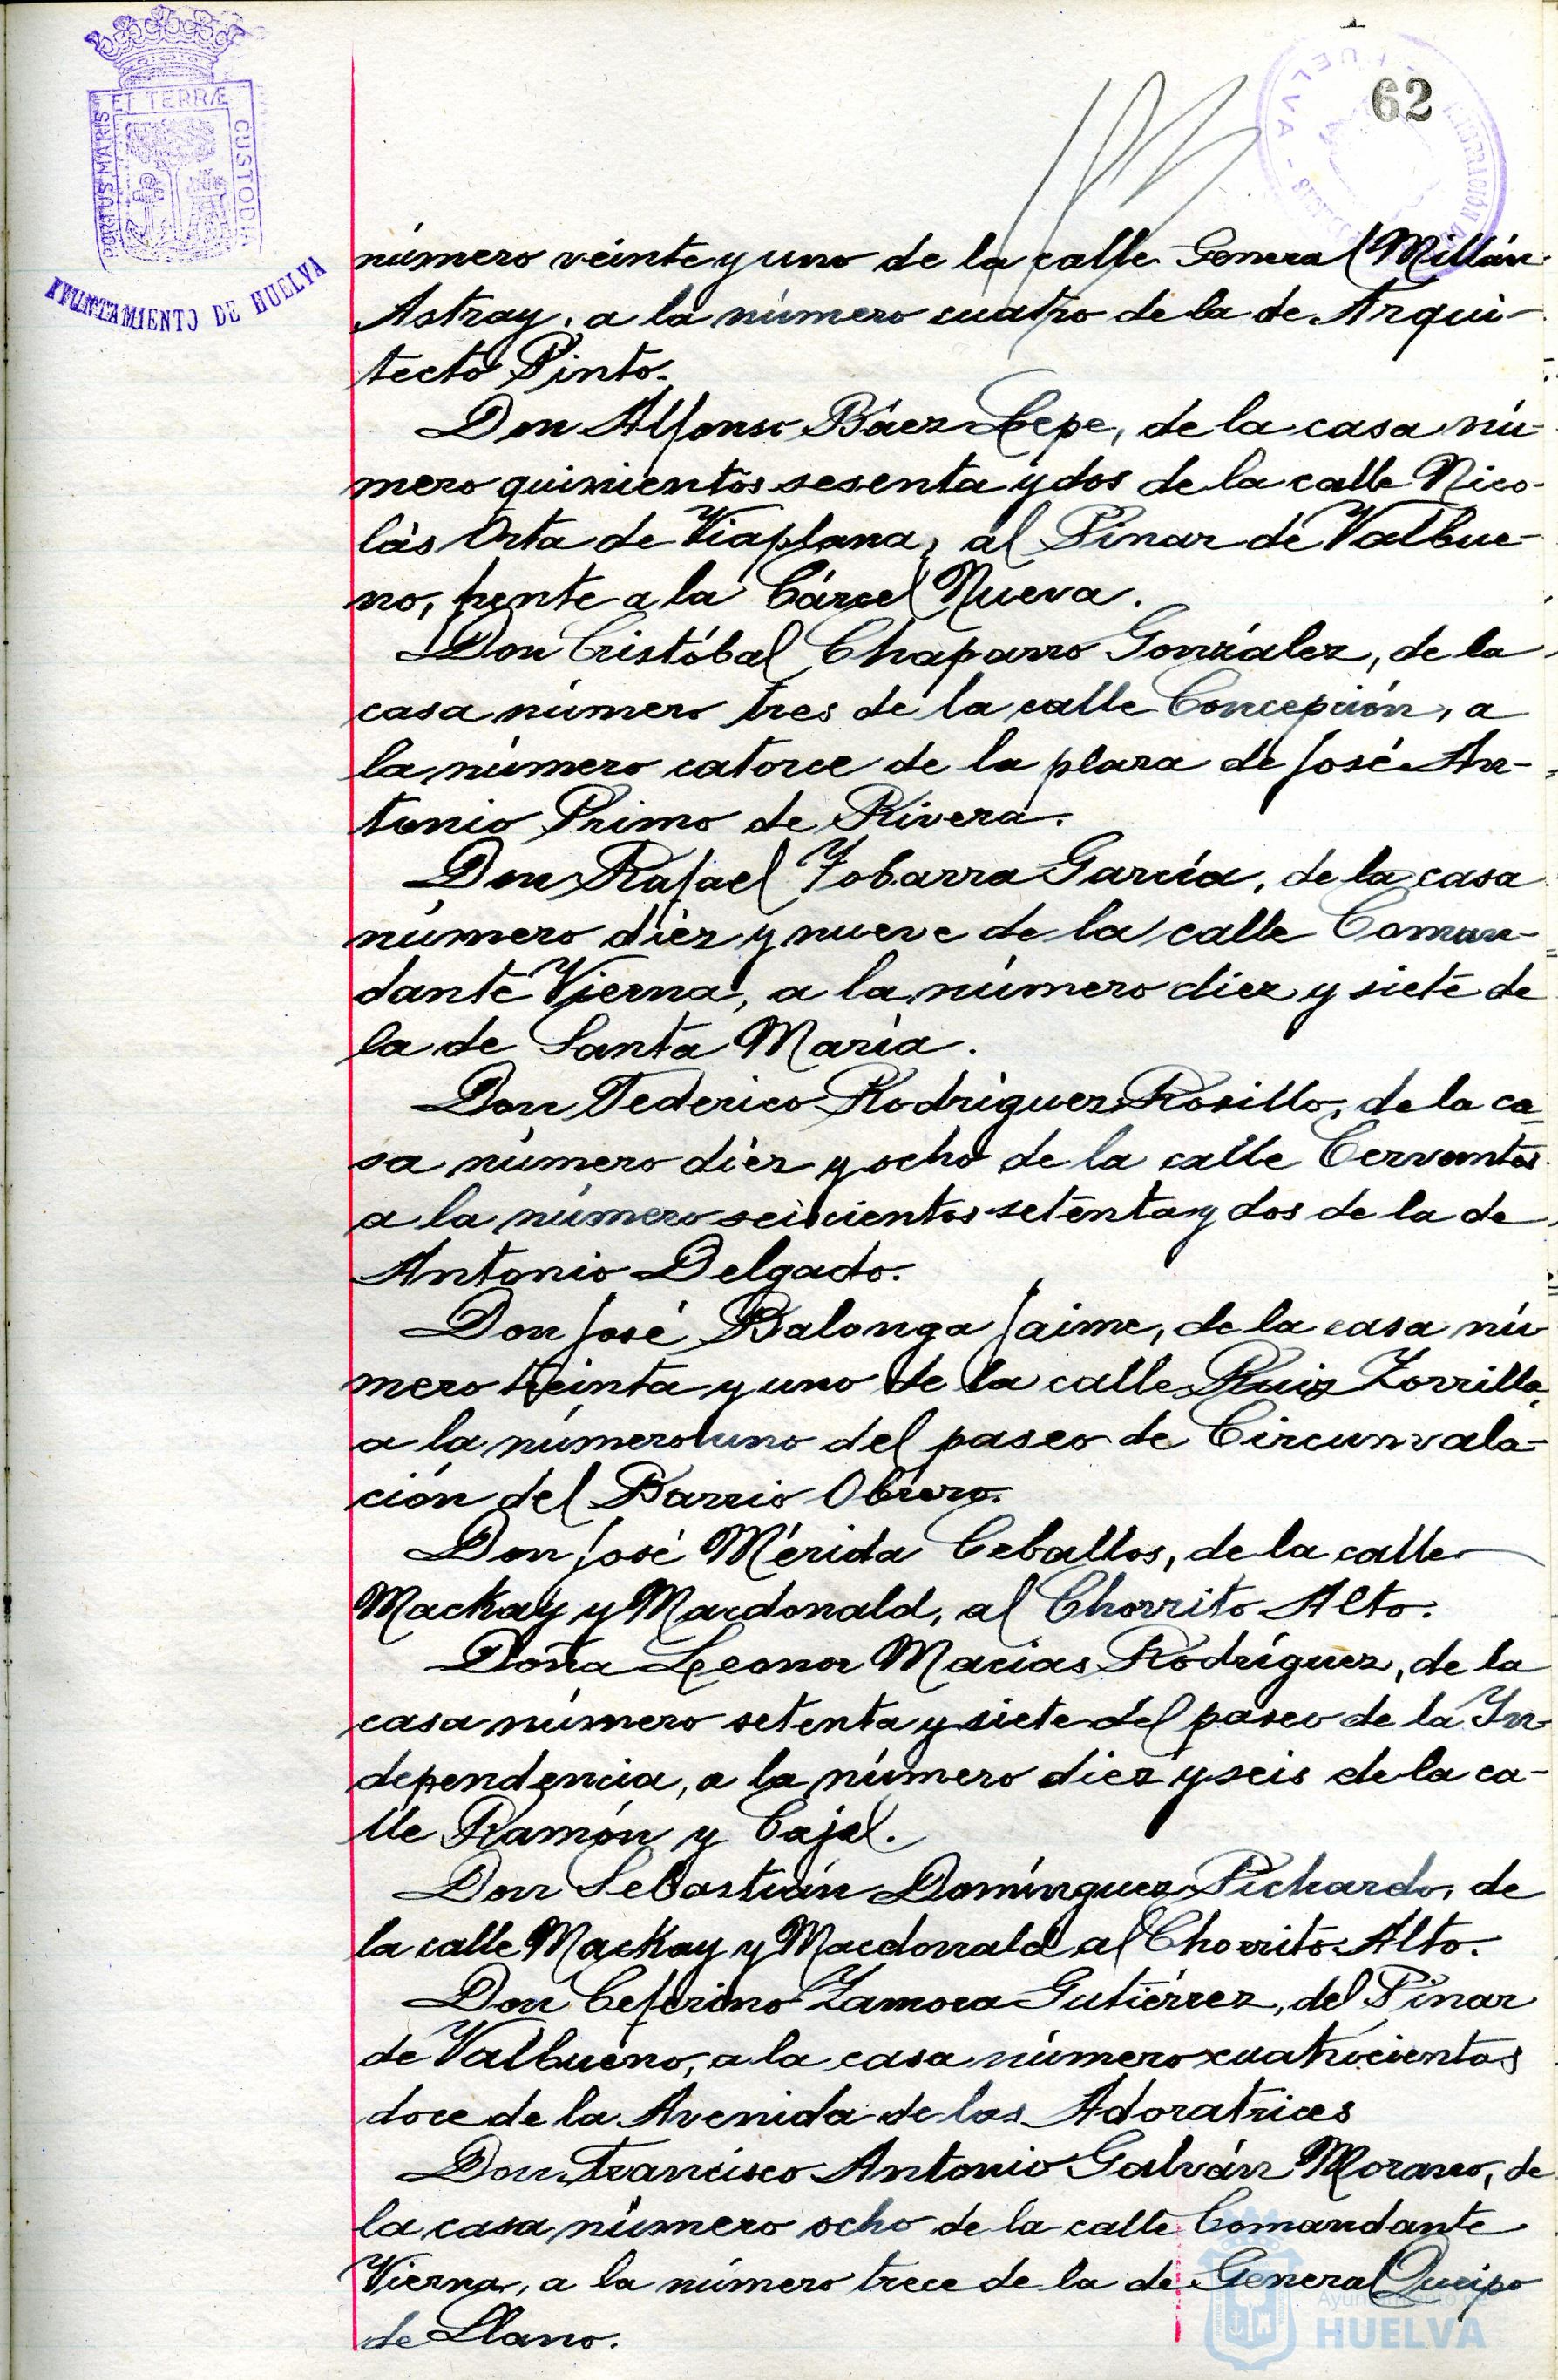 ET TERRÆ
PORTUS MARIS
CUSTODIA
AYUNTAMIENTO DE HUELVA
62
número veinte y uno de la calle General Millán
Astray, a la número cuatro de la de Arqui-
tecto Pinto.
Don Alfonso Báez Lepe, de la casa nú-
mero quinientos sesenta y dos de la calle Nico-
lás Orta de Viaplana, al Pinar de Valbue-
no, frente a la Cárcel Nueva.
Don Cristóbal Chaparro González, de la
casa número tres de la calle Concepción, a
la número catorce de la plaza de José An-
tonio Primo de Rivera.
Don Rafael Tobarra García, de la casa
número diez y nueve de la calle Coman-
dante Vierna, a la número diez y siete de
la de Santa María.
Don Federico Rodríguez Rosillo, de la ca-
sa número diez y ocho de la calle Cervantes
a la número seiscientos setenta y dos de la de
Antonio Delgado.
Don José Balonga Jaime, de la casa nú
mero treinta y uno de la calle Ruiz Zorrilla,
a la número uno del paseo de Circunvala-
ción del Barrio Obrero.
Don José Mérida Ceballos, de la calle
Mackay y Macdonald, al Chorrito Alto.
Doña Leonor Macías Rodríguez, de la
casa número setenta y siete del paseo de la In
dependencia, a la número diez y seis de la ca-
lle Ramón y Cajal.
Don Sebastián Domínguez Pichardo, de
la calle Mackay y Macdonald al Chorrito Alto.
Don Ceferino Zamora Gutiérrez, del Pinar
de Valbueno, a la casa número cuatrocientos
doce de la Avenida de las Adoratrices
Don Francisco Antonio Galván Moraño, de
la casa número ocho de la calle Comandante
Vierna, a la número trece de la de General Queipo
de Llano.
Ayuntamiento de
HUELVA